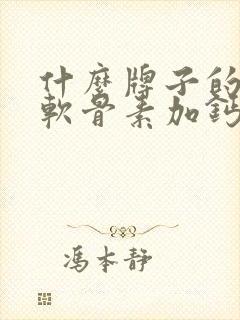 什麼牌子的
軟骨素加鈣
馮本靜